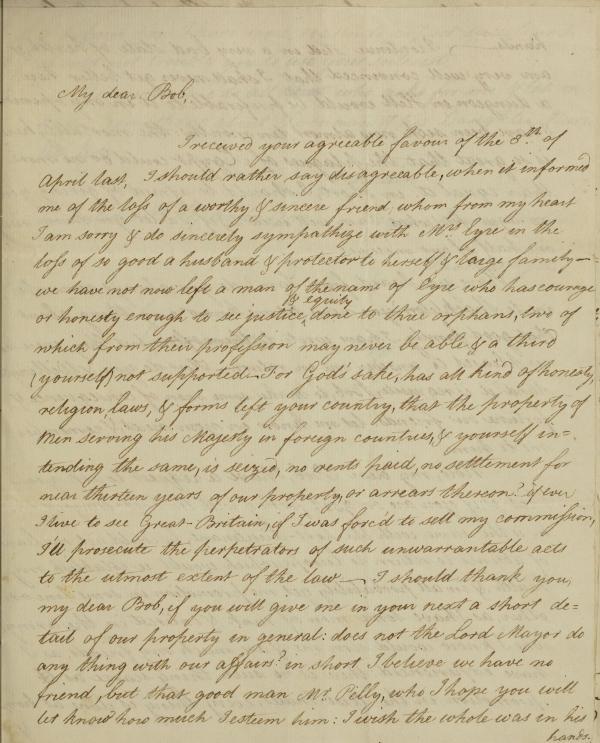 My dear Bob,
I received your agreeable favour of the 8th. of
April last, I should rather say disagreeable, when it informed
me of the loss of a worthy, & sincere friend, whom from my heart
I am sorry & do sincerely sympathize with Mrs. Eyre in the
loss of so good a husband & protector to herself & large family—
we have not now left a man of the name of Eyre who has courage
& equity
or honesty enough to see justice ‸ done to three orphans, two of
which from their profession may never be able & a third
(yourself) not supported— For God's sake, has all kind of honesty,
religion, laws, & forms left your country, that the property of
Men serving his Majesty in foreign countries, & yourself in=
tending the same, is seized, no rents paid, no settlement for
near thirteen years of our property, or arrears thereon? if ever
I live to see Great-Britain, if I was forc'd to sell my commission,
I'll prosecute the perpetrators of such unwarrantable acts
to the utmost extent of the law— I should thank you,
my dear Bob, if you will give me in your next a short de=
tail of our property in general: does not the Lord Mayor do
any thing with our affairs? in short I believe we have no
friend, but that good man Mr. Pelly, who I hope you will
let know how much I esteem him: I wish the whole was in his
hands.